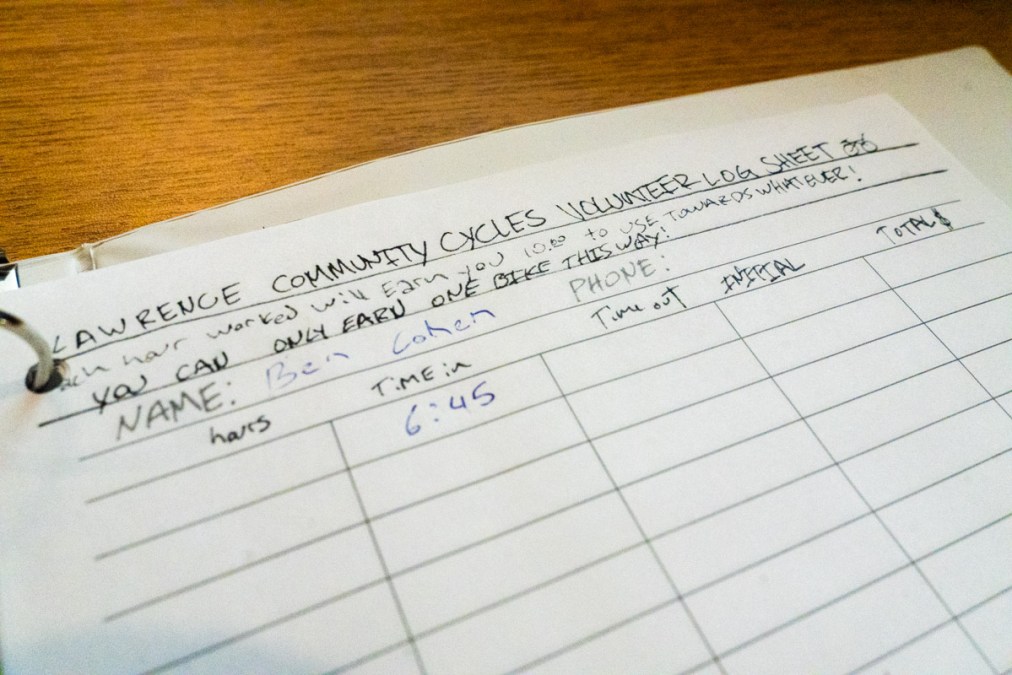 LAWRENCE COMMUNITY CYCLES VOLUNTEER LOG SHEET
Each hour worked will Earn you 10.00 to use TOWARDS WHATEVER!
YOU CAN ONLY EARN ONE BIKE THIS WAY!
NAME: Ben Cohen PHONE:
hours TIME in Time out INITIAL TOTAL $
6:45